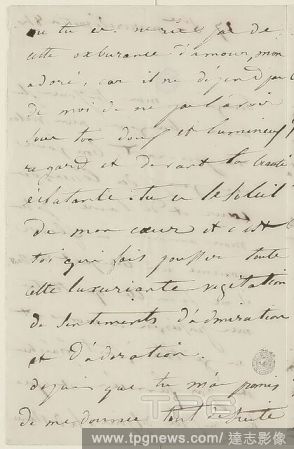 que tu es. ne ris pas de
cette exburance d'amour, mon
adoré, car il ne dépend pas
de moi de ne pas l'avoir
sous ton doux et lumineux
regard et devant ta beauté
éclatante. tu es le soleil
de mon cœur et c'est
toi qui fais pousser toute
cette luxuriante végétation
de sentiments d'admiration
et d'adoration.
depuis que tu m'as promis
de me donner tout de suite
TPG
www.tpgnews.com / 達志影像